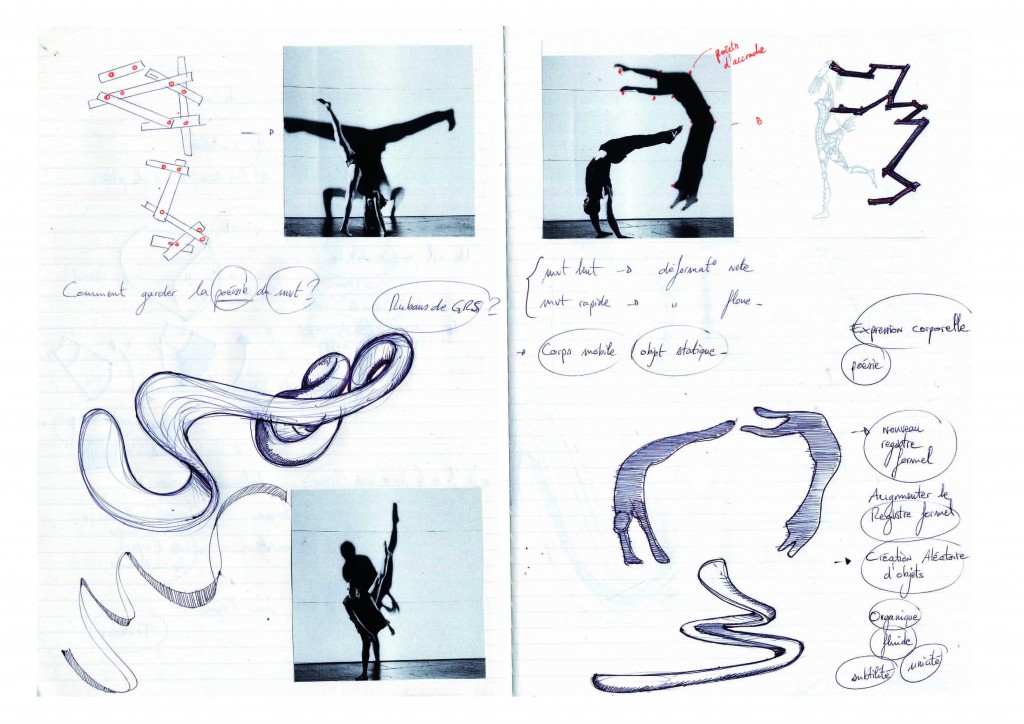 Comment garder la poésie du mvt ?
Rubans de GRS ?
points
d'accroche
B
mvt lent → déformat° nette
mvt rapide → " floue -
→ Corps mobile objet statique -
Expression corporelle
poésie
→ nouveau
registre
formel
Augmenter le
Registre formel
→ Création Aléatoire
d'objets
Organique
fluide
subtilité unicité